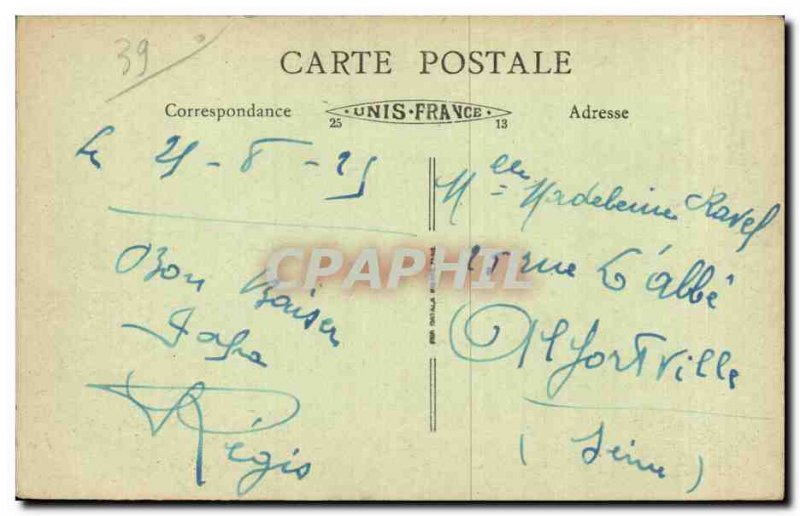 39
CARTE POSTALE
Correspondance
UNIS-FRANCE
25 13
Adresse
Le 25-8-25
Bon Baiser
Papa
Régis
Mlle Madeleine Ravel
25 rue L'abbé
Alfortville
(Seine)
CPAPHIL